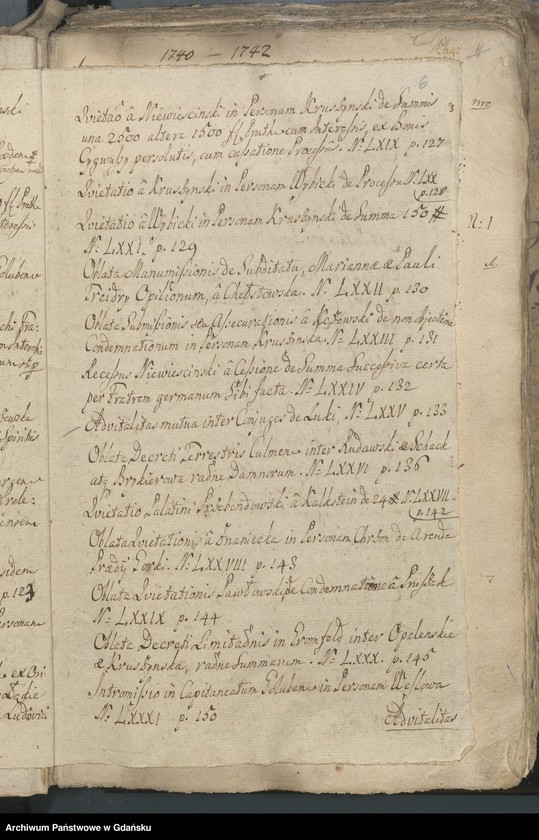 1740 — 1742
6
Quietaō â Niewiescinski in Personam Kruszynski de Summis
una 2500 altera 1500 fl. Pruth. cum Interessis, ex Bonis
persolutis, cum cassatione Processus. Nº LXIX p. 127
Quietatio â Kruszynski in Personam Wybicki de Processu Nº LXX
p. 128
Quietatio â Wybicki in Personam Kruszynski de Summa 150 #
Nº LXXI. p. 129
Oblata Manumissionis de Subditatu, Mariannæ & Pauli
Opilionum, â Chełstowska. Nº LXXII p. 130
Oblata Submissionis seu Assecurationis â de non
Condemnationum in Personam Kruszynska. Nº LXXIII p. 131
Recessus Niewiescinski â Cessione de Summa Successiva certa
per Fratrem germanum Sibi facta. Nº LXXIV p. 132
Advitalitas mutua inter Conjuges de Luki, Nº LXXV p. 133
Oblata Decreti Terrestris Culmen. inter Rudawski & Schack
atq Brykierowa raōne Damnorum. Nº LXXVI p. 136
Quietatio Palatini Przebendowski â Kalkstein de 24 # Nº LXXVII
p. 142
Oblata Quietationis â Znaniecka in Personam Chrząn de Arenda
Prædij Gorki. Nº LXXVIII p. 143
Oblata Quietationis Pawłowski de Condemnatione â
Nº LXXIX p. 144
Oblata Decreti Limitaōnis in Fromfeld inter Opolenskie
& Kruszynska, raōne Summarum. Nº LXXX. p. 145
Intromissio in Capitaneatum Goluben. in Personam Węslowa
Nº LXXXI p. 150
Advitalitas
Archiwum Państwowe w Gdańsku